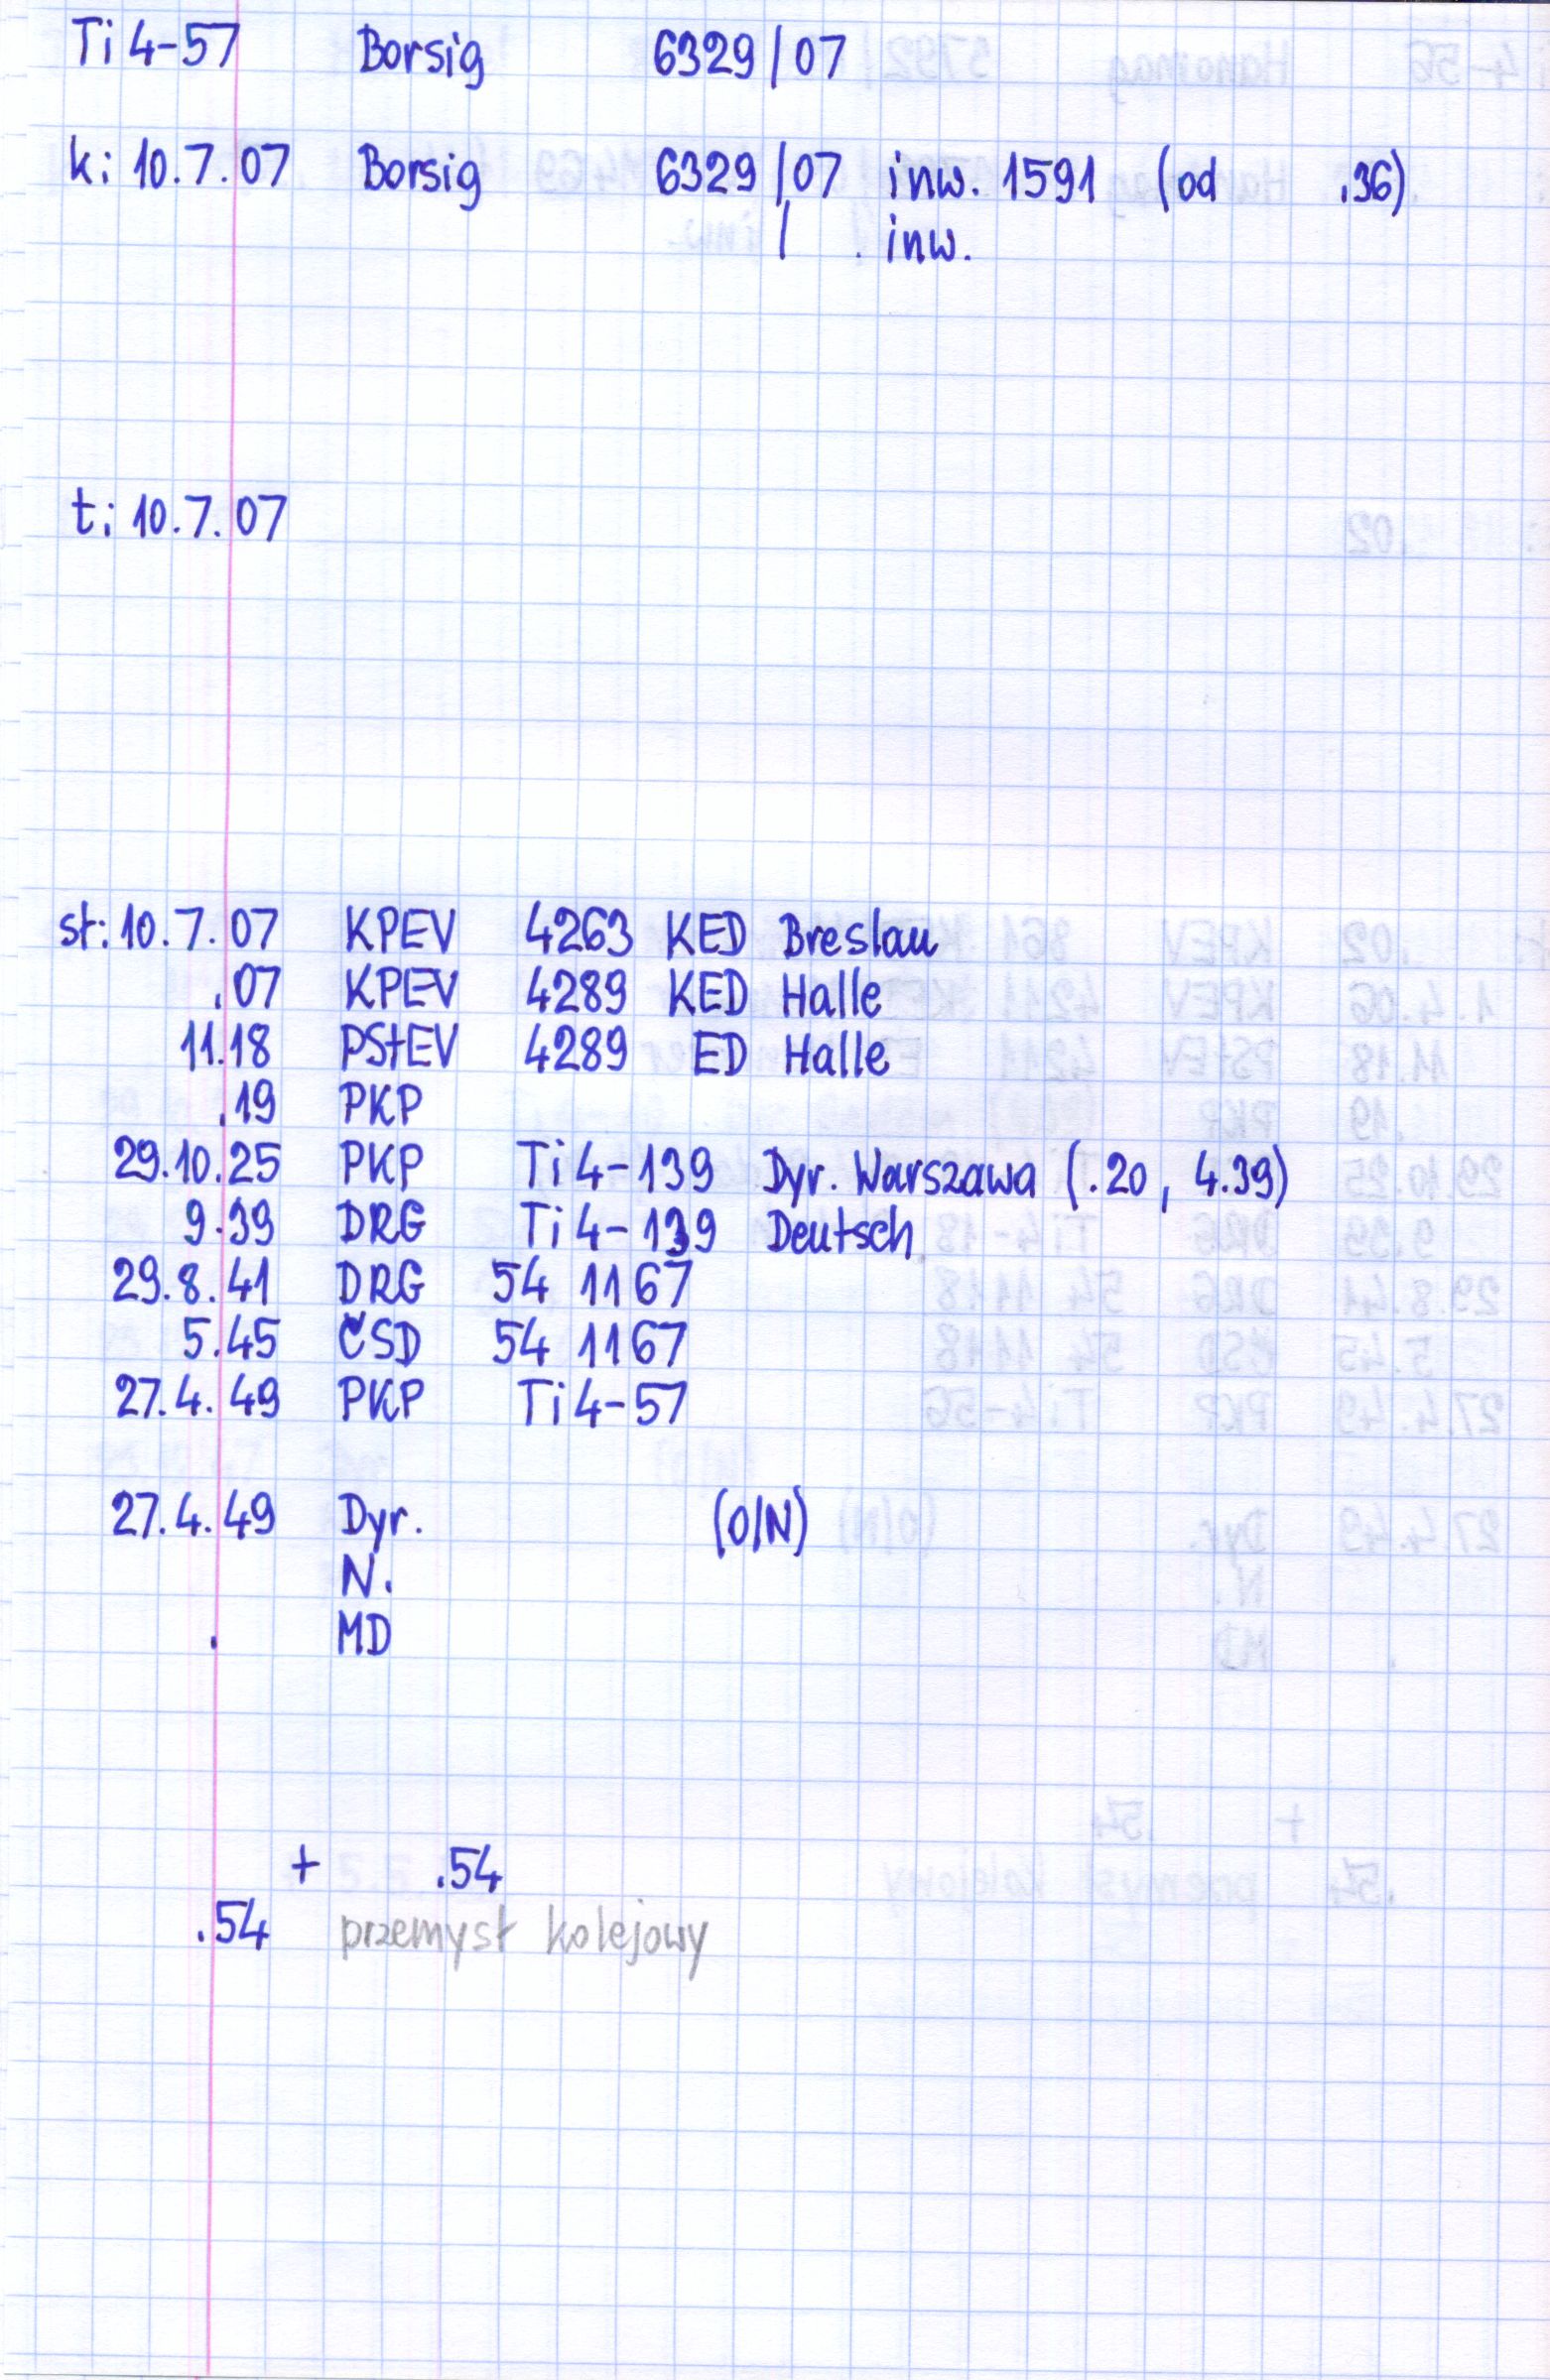 Ti4-57 Borsig 6329/07
k: 10.7.07 Borsig 6329/07 inw. 1591 (od .36)
/ . inw.
t: 10.7.07
st: 10.7.07 KPEV 4263 KED Breslau
.07 KPEV 4289 KED Halle
11.18 PStEV 4289 ED Halle
.19 PKP
29.10.25 PKP Ti4-139 Dyr. Warszawa (.20, 4.39)
9.39 DRG Ti4-139 Deutsch
29.8.41 DRG 54 1167
5.45 ČSD 54 1167
27.4.49 PKP Ti4-57
27.4.49 Dyr. (O/N)
N.
. MD
+ .54
.54 przemysł kolejowy